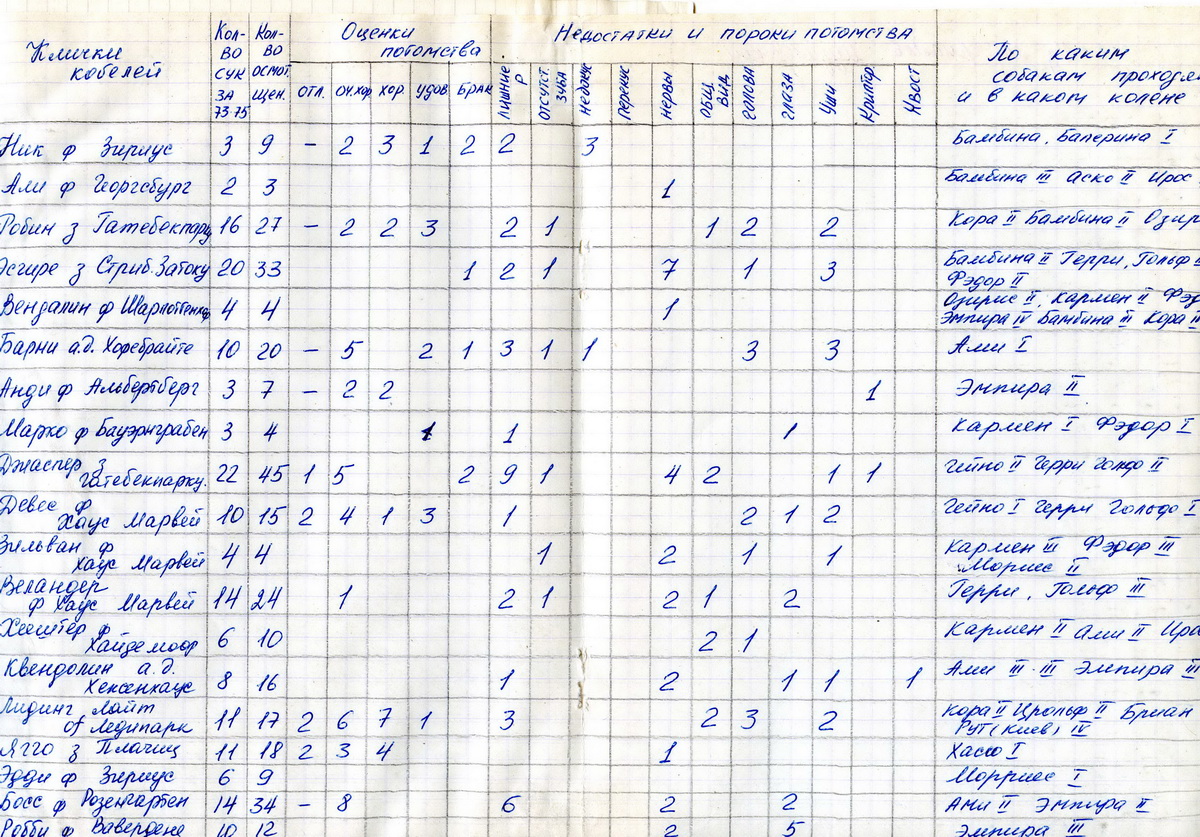 Клички кобелей Кол-во сук за 73 75 Кол-во осмот. щен. Оценки потомства Недостатки и пороки потомства По каким собакам проходя и в каком колене
отл. оч.хор хор. удов брак лишние Р отсутст. зуба недокус Перекус нервы общ. вид. голова глаза Уши Крипт хвост
Ник ф Зириус 3 9 – 2 3 1 2 2 3 Бамбина, Балерина I
Али ф Георгсбург 2 3 1 Бамбина III Аско II Ирос
Робин з Гатебекпарку 16 27 – 2 2 3 2 1 1 2 2 Кора II Бамбина II Озир
Эсгире з Стриб. Затоку 20 33 1 2 1 7 1 3 Бамбина II Герри, Гольф
Фэдор II
Вендалин ф Шарлоттенхоф 4 4 1 Озирис II, Кармен II Фэд
Эмпира IV Бамбина III Кора II
Барни а.д. Хофебрайте 10 20 – 5 2 1 3 1 1 3 3 Ами I
Анди ф Альбертберг 3 7 – 2 2 1 Эмпира II
Марко ф Бауэрнграбен 3 4 1 1 1 Кармен I Фэдор I
Джаспер з Гатебекпарку. 22 45 1 5 2 9 1 4 2 1 1 Гейно II Герри Гольф II
Девес ф Хаус Марвей 10 15 2 4 1 3 1 2 1 2 Гейно I Герри Гольф I
Зильван ф Хаус Марвей 4 4 1 2 1 1 Кармен III Фэдор III
Моррис II
Веландер ф Хаус Марвей 14 24 1 2 1 2 1 2 Герри, Гольф III
ф Хайдемоор 6 10 2 1 Кармен II Ами II
Квендолин а.д. Хексенхаус 8 16 1 2 1 1 1 Ами III-III Эмпира III
Лидинг Лайт of Ледипарк 11 17 2 6 7 1 3 2 3 2 Кора II Ирольф II Бриан
Рут (Киев) IV
Ягго з Плачиц 11 18 2 3 4 1 Хассо I
Эдди ф Зириус 6 9 Моррис I
Босс ф Розенгартен 14 34 – 8 6 2 2 Ами II Эмпира II
Робби ф Вавердене 10 12 2 5 Эмпира III